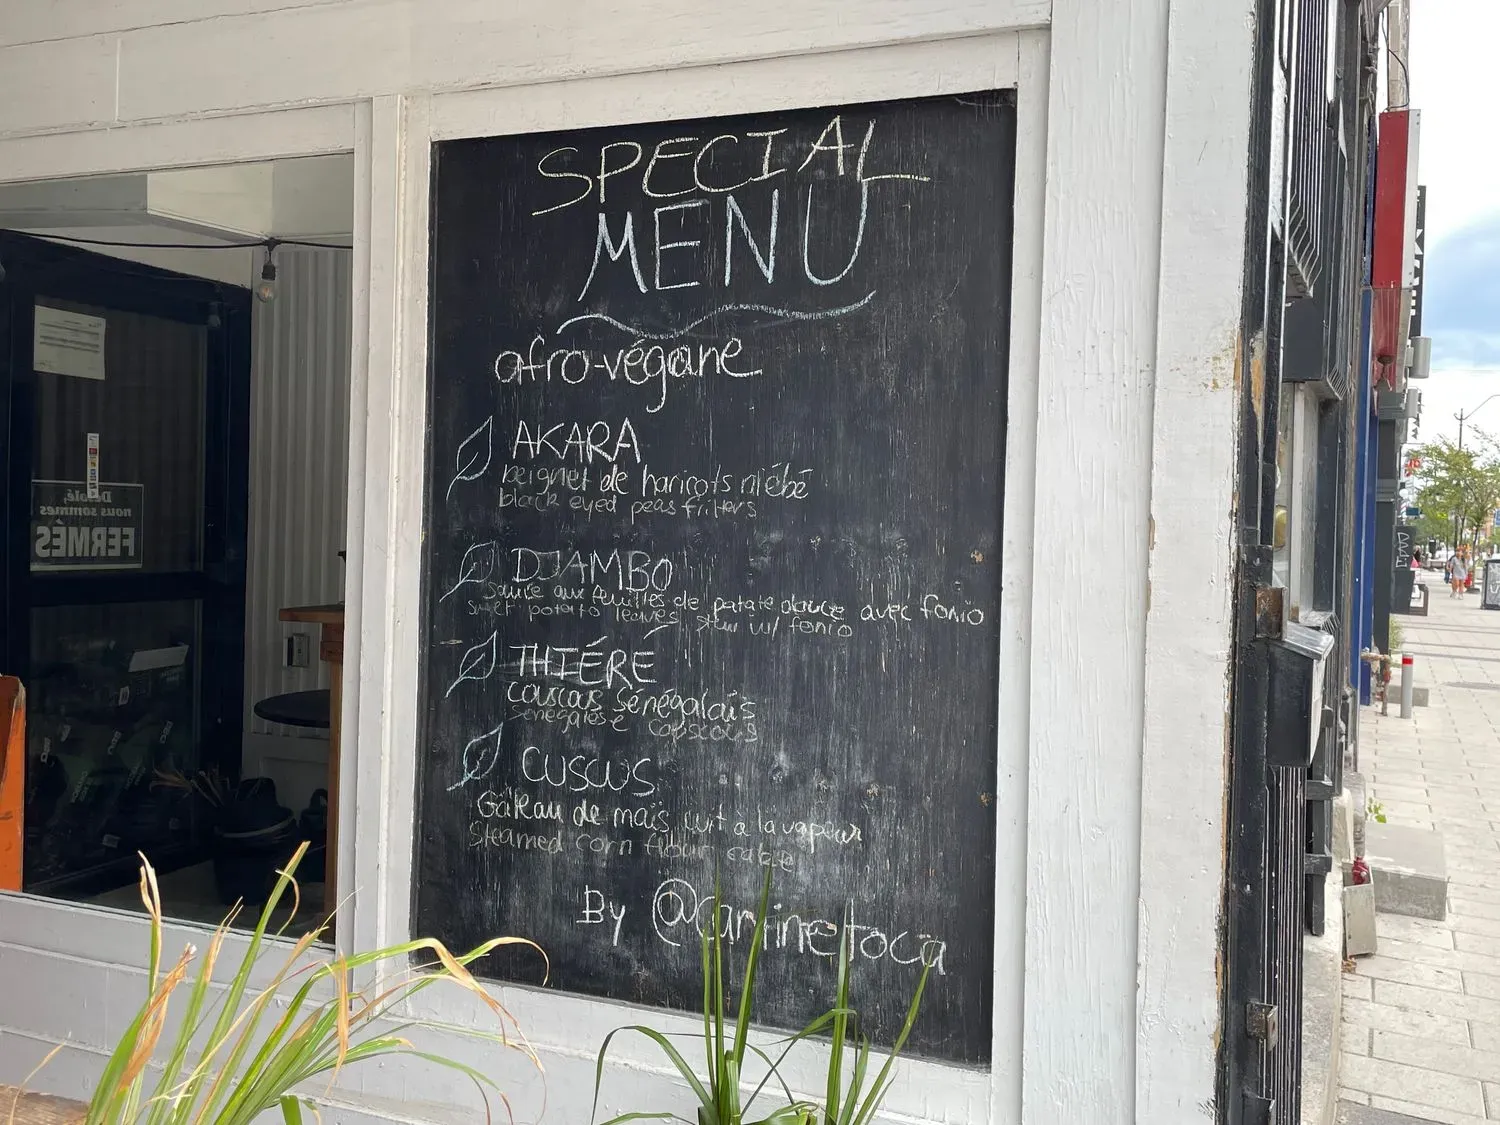 SPECIAL
MENU
afro-végane
AKARA
beignet de haricots niébé
black eyed peas fritters
DJAMBO
sauce aux feuilles de patate douce avec fonio
sweet potato leaves stew w/ fonio
THIÉRÉ
couscous Sénégalais
senegalese couscous
CUSCUS
Gâteau de maïs cuit à la vapeur
Steamed corn flour cake
By @cantinetoca
Désolé,
nous sommes
FERMÉS
DELI